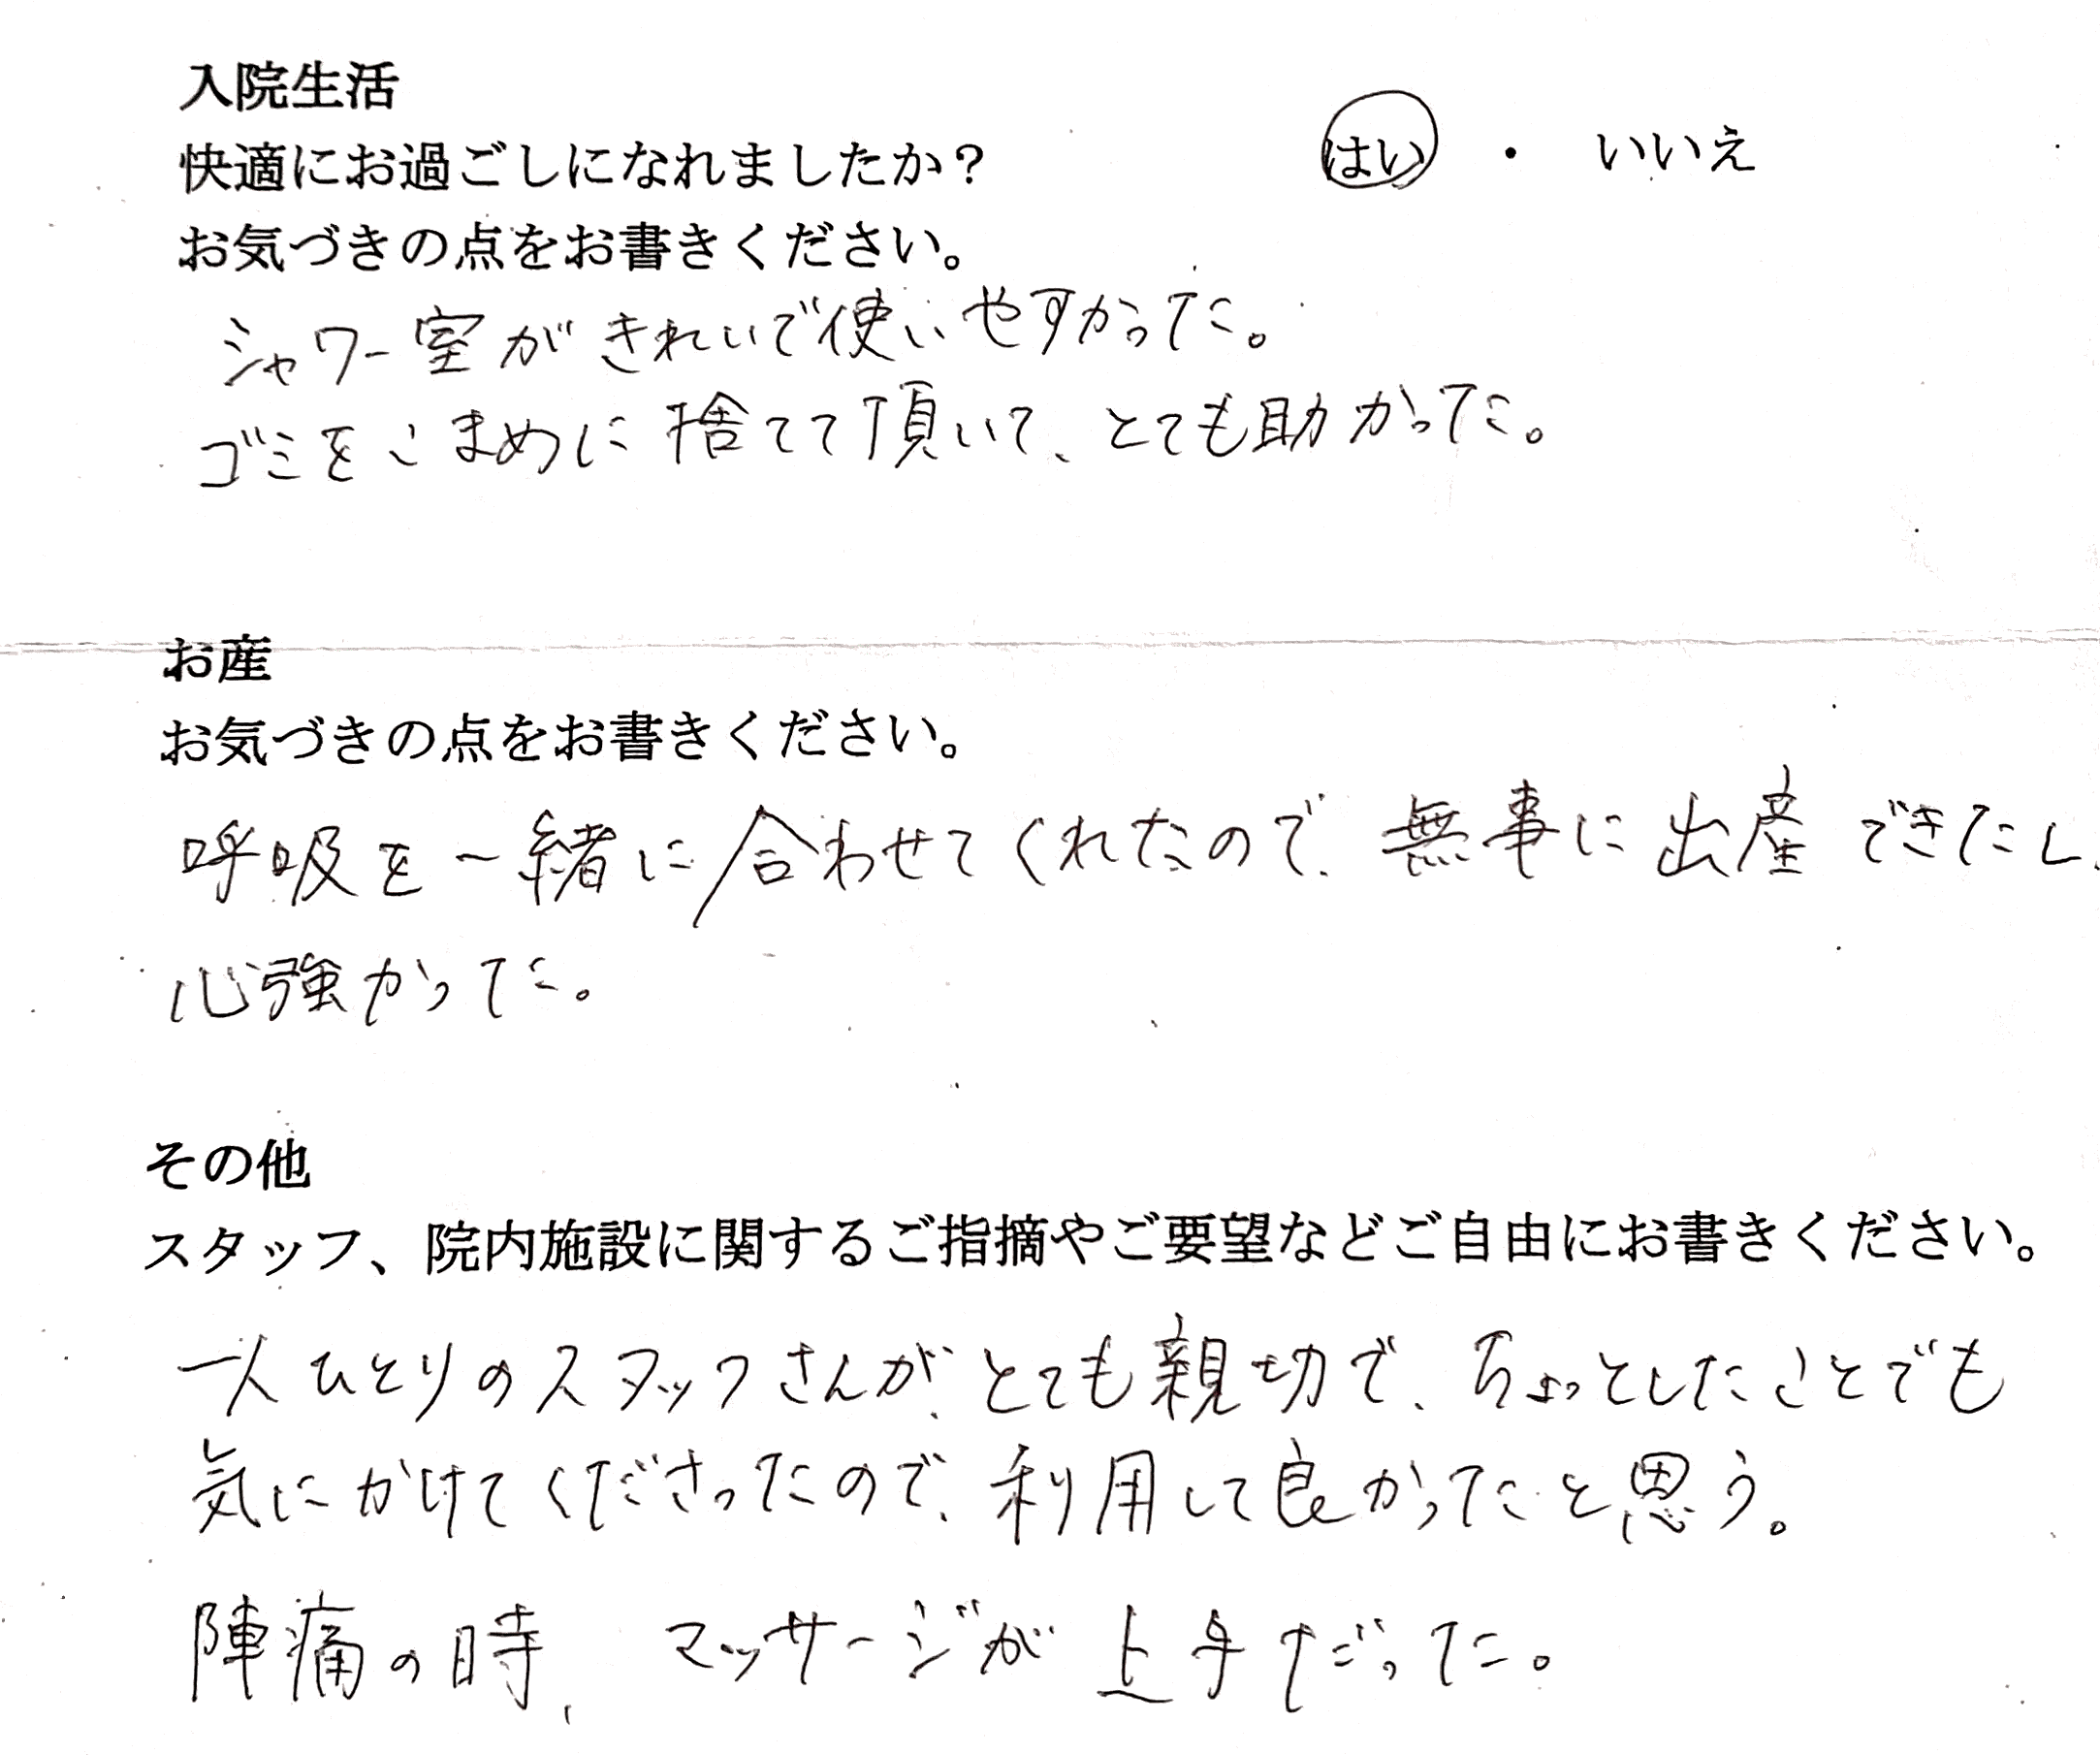 入院生活
快適にお過ごしになれましたか？ はい ・ いいえ
お気づきの点をお書きください。
シャワー室がきれいで使いやすかった。
ゴミをこまめに捨てて頂いて、とても助かった。
お産
お気づきの点をお書きください。
呼吸を一緒に合わせてくれたので、無事に出産できたし、
心強かった。
その他
スタッフ、院内施設に関するご指摘やご要望などご自由にお書きください。
一人ひとりのスタッフさんが、とても親切で、ちょっとしたことでも
気にかけてくださったので、利用して良かったと思う。
陣痛の時、マッサージが上手だった。